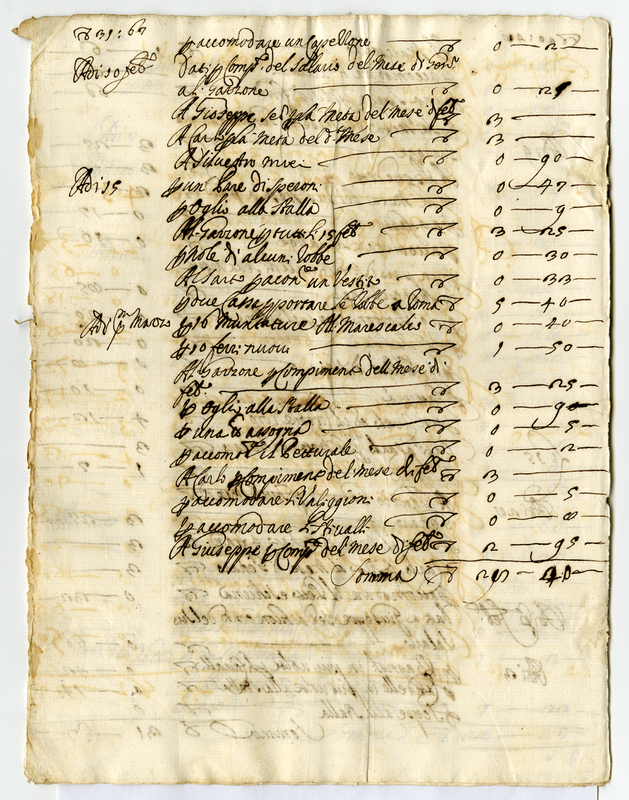 ∇ 31 : 67
p accomodare un Cassettone ∇ 0 — 2 —
Adi 10 feb.º Dati p Comp.º del Salario del Mese di Gen.º
al Garzone ∇ 0 — 25
A Gioseppe p la Metà del Mese di feb.º ∇ 3 —
A Carlo p la Metà del d.º Mese ∇ 3 —
A Silvestro ∇ 0 — 90 —
Adi 15 p un Pare di speron: ∇ 0 — 47 —
p oglio alla Stalla ∇ 0 — 9 —
Al Garzone p tutto li 15 feb.º ∇ 3 — 25 —
p Nole di alcuni Robbe ∇ 0 — 30 —
Al Sart. p acon.re un Vestito ∇ 0 — 33 —
p due Casse p portare le Robbe a Roma ∇ 5 — 40 —
Adi p.º Marzo p 16 Muniature Al Marescalco ∇ 0 — 40 —
p 10 ferri nuovi ∇ 1 — 50 —
Al Garzone p Compimento dell Mese di
feb.º ∇ 3 — 25 —
p Oglio alla Stalla ∇ 0 — 90 —
p una assogna ∇ 0 — 5 —
p accomo.re il Petturale ∇ 0 — 2 —
A Carlo p Compimento del mese di feb.º ∇ 3 —
p accomodare li Valiggioni ∇ 0 — 5 —
p accomodare li Stivalli ∇ 0 — 8 —
A Giuseppe p Comp.º del mese di feb.º ∇ 2 — 95 —
Somma ∇ 29 — 40 —